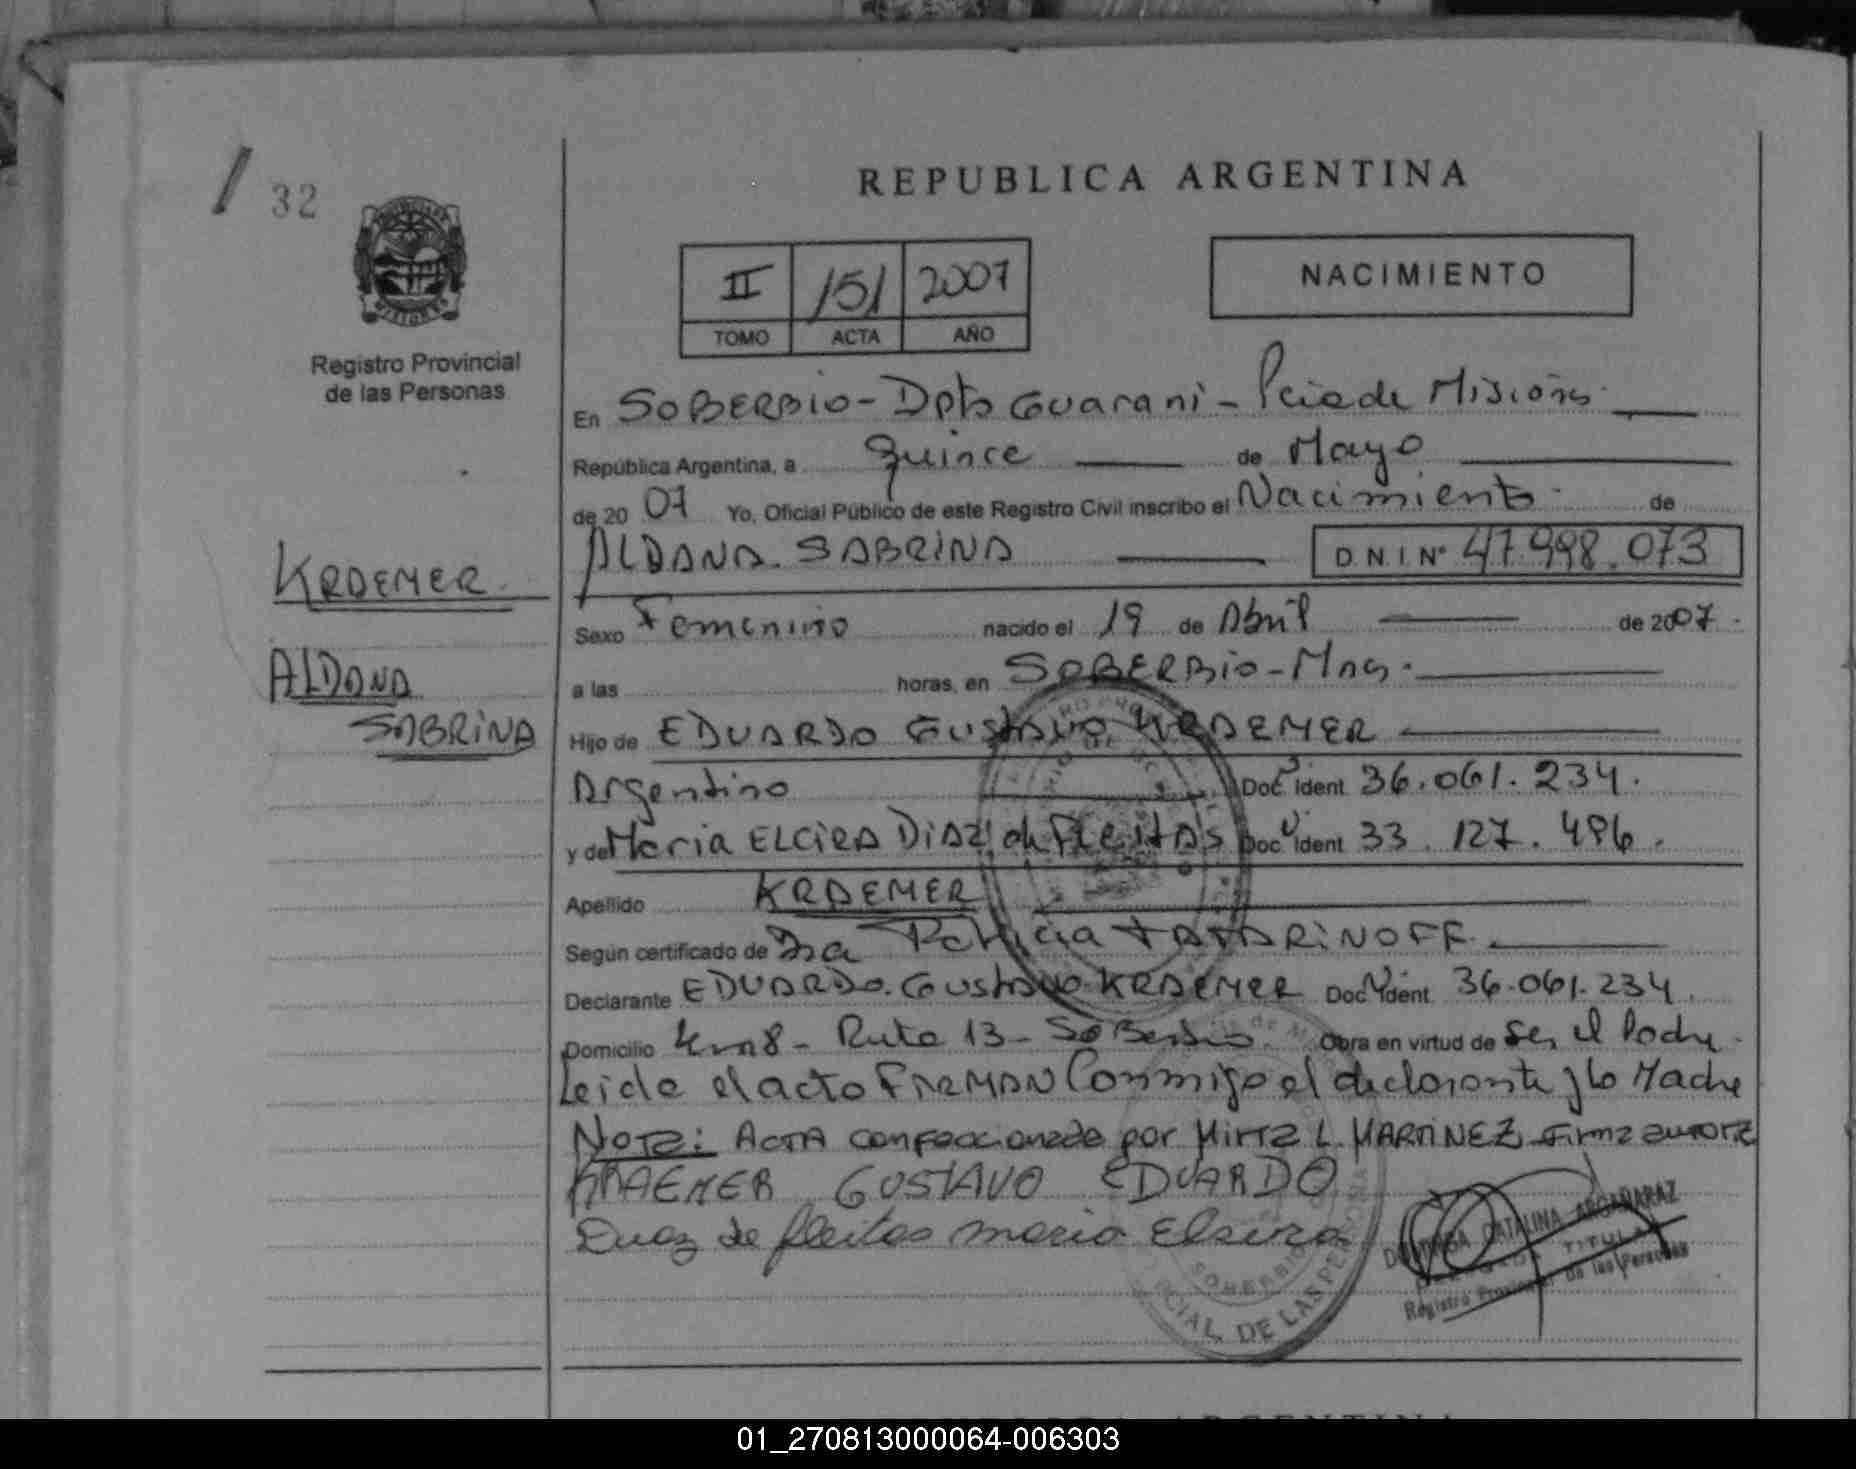 32
REPUBLICA ARGENTINA
II 151 2007
TOMO ACTA AÑO
NACIMIENTO
Registro Provincial
de las Personas
En SOBERBIO - Dpto Guarani - Pcia de Misiones
República Argentina, a quince de Mayo
de 20 07 Yo, Oficial Público de este Registro Civil inscribo el Nacimiento de
ALDANA SABRINA D.N.I. N° 47.998.073
KRAEMER
Sexo Femenino nacido el 19 de Abril de 2007
ALDANA
a las horas, en SOBERBIO - Mnes.
SABRINA
Hijo de EDUARDO GUSTAVO KRAEMER
Argentino Doc. Ident. 36.061.234.
y de Maria ELCIRA DIAZ de FLEITAS Doc. Ident. 33.127.496.
Apellido KRAEMER
Según certificado de Dra Patricia TATARINOFF.
Declarante EDUARDO GUSTAVO KRAEMER Doc. Ident. 36.061.234
Domicilio Km 8 - Ruta 13 - Soberbio. Obra en virtud de Ser el Padre
Leida el acta FIRMAN Conmigo el declarante y la Madre
NOTA: ACTA confeccionada por MIRTA L. MARTINEZ Firma autoriza
KRAEMER GUSTAVO EDUARDO
Diaz de fleitas maria Elsira
CATALINA ARGAÑARAZ
TITULAR
Registro Provincial de las Personas
SOBERBIO
DE LAS PERSONAS
REPUBLICA ARGENTINA
01_270813000064-006303